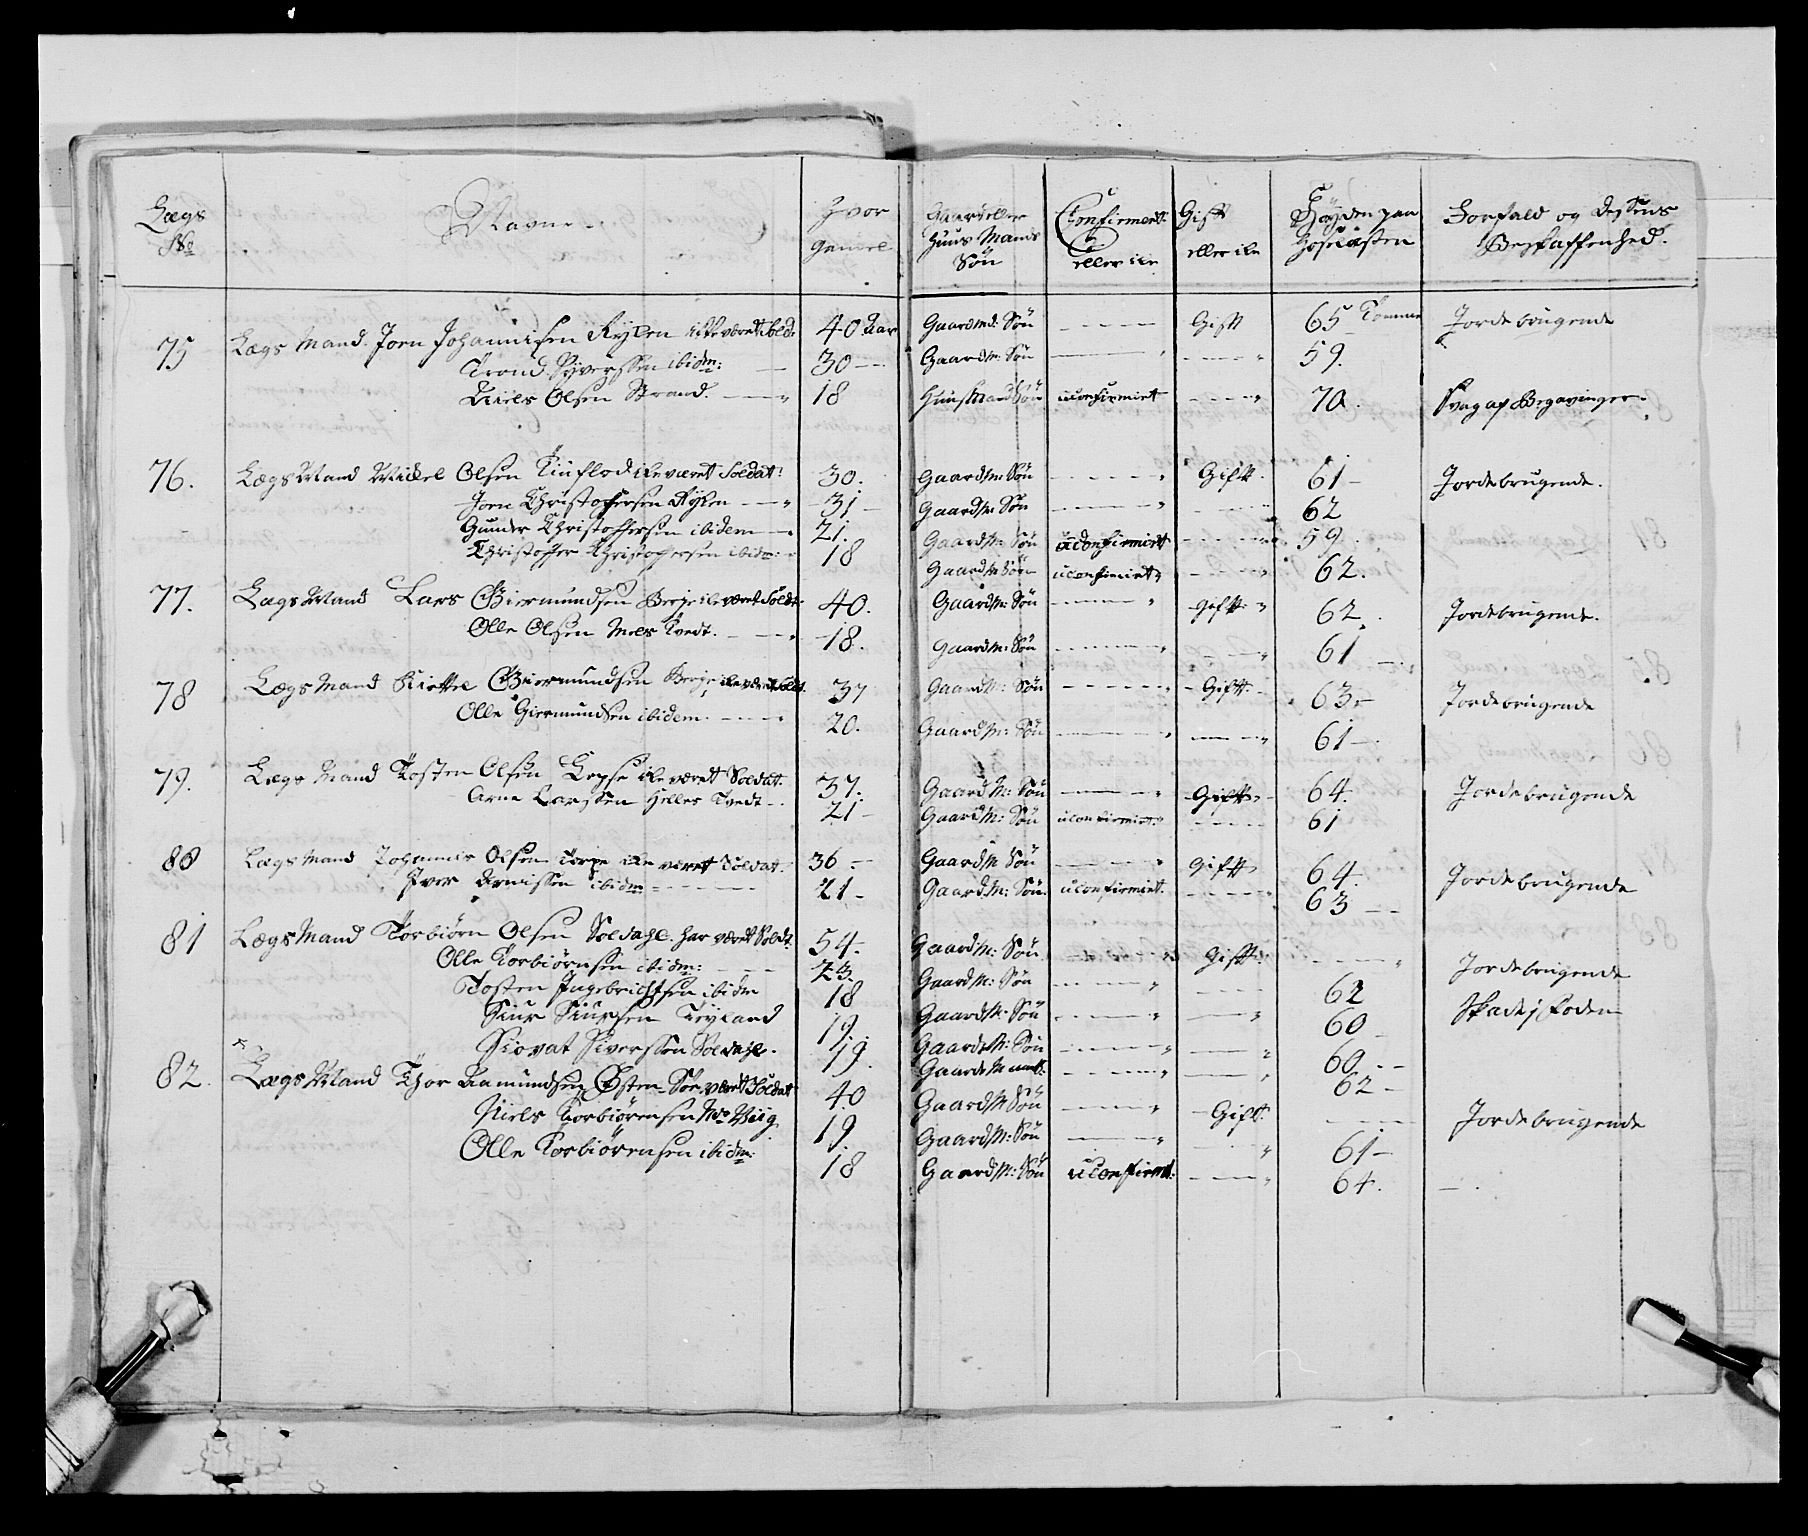 Lægs No | Navne | Hvor Gamel | Gaard eller Huus Mands Søn | Confirmert eller ike | Gift eller ike | Høyden paa Hoselæsten | Forfald og dessens Beskaffenhed.
75 Lægs Mand. Jorn Johannisen Rylen ikke været Sold: | 40 Aar | Gaardmd: Søn | - - - - | Gift | 65 Tommer | Jordebrugende
Trond Syverssen ibidm: | 30 - | Gaardm: Søn | - - - - | - - - - | 59.
Niels Olsen Strand. | 18 | Huusmand Søn | uconfirmirt | - - - - | 70. | Svag af Begavinger.
76. Lægs Mand Mickel Olsen ike været Soldat: | 30. | Gaardm: Søn | - - - - | Gift. | 61 - | Jordebrugende.
Jorn Christophersen Rylen | 31 - | Gaardm Søn | - - - - | - - - - | 62
Gunder Christophersen ibidem | 21. | Gaardm Søn | uconfirmirt | - - - - | 59
Christopher Christophersen ibidm: | 18 | Gaardm Søn | uconfirmirt | - - - - | 62.
77. Lægs Mand Lars Giermundsen Berge ike været Soldt. | 40. | Gaardm: Søn | - - - - | Gift | 62. | Jordebrugende.
Olle Olsen Mels Tvedt. | 18. | Gaardm: Søn | - - - - | - - - - | 61 -
78 Lægs Mand Kittel Giermundsen Berge ike været Soldt. | 37 | Gaardm: Søn | - - - - | Gift. | 63 - | Jordebrugende
Olle Giermundsen ibidem. | 20. | Gaardm: Søn | - - - - | - - - - | 61 -
79. Lægs Mand Tosten Olsen ike været Soldat. | 37. | Gaardm: Søn | - - - - | Gift | 64. | Jordebrugende
Arne Larssen Helles Tvedt | 21 - | Gaardm: Søn | uconfirmirt | - - - - | 61
80 Lægs Mand Johannis Olsen Torpe ike været Soldat. | 36 - | Gaardm Søn | - - - - | Gift | 64. | Jordebrugende
Iver Arnissen ibidm | 21 - | Gaardm: Søn. | uconfirmirt. | - - - - | 63 - -
81 Lægs Mand Torbiørn Olsen Soldahl. har været Soldt. | 54 - | Gaardm: Søn | - - - - | Gift. | - - - - | Jordebrugende
Olle Torbiørnsen ibidm: | 23. | Gaardm: Søn | - - - - | - - - - | 62 | Skade i Foden
Tosten Ingebrichtsen ibidm | 18 | Gaardm. Søn | - - - - | - - - - | 60 -
Siur Siursen | 19. | Gaardm: Søn | - - - - | - - - - | 60 - -
Siovat Siverssøn Soldahl. | 19. | Gaardm | - - - - | - - - - | 62 -
82. Lægs Mand Thor Aamundsen Østen været Soldat | 40 | Gaardm Søn | - - - - | Gift. | - - - - | Jordebrugende
Niels Torbiørensen | 19 | Gaardm: Søn | - - - - | - - - - | 61 -
Olle Torbiørensen ibidm: | 18 | Gaardm: Søn | uconfirmt: | - - - - | 64. | -